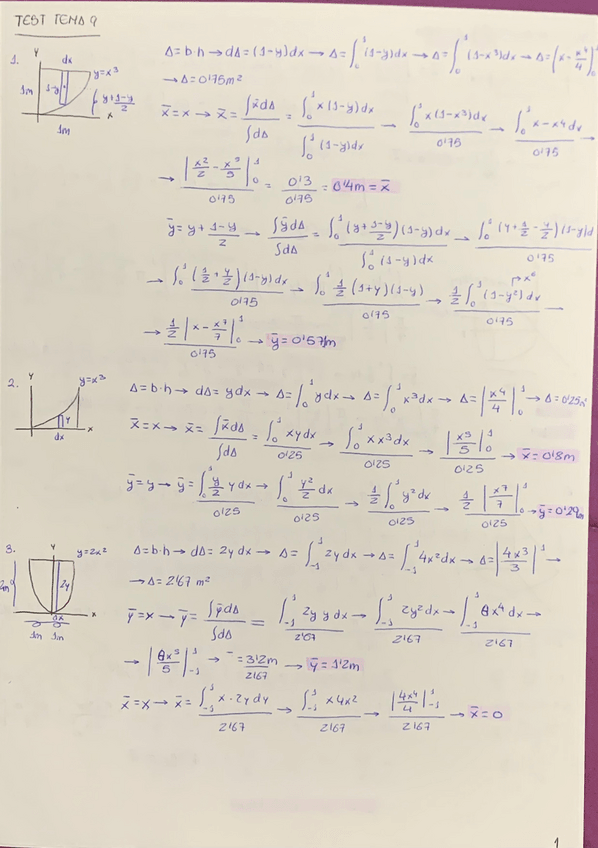 TEST TEMA 9
1. Y dx y=x³ 1m 1-y y+(1-y)/2 x 1m
A=b·h → dA=(1-y)dx → A=∫₀¹(1-y)dx → A=∫₀¹(1-x³)dx → A=(x-x⁴/4)₀¹
→ A=0'75m²
x̄=x → x̄=∫x̄dA/∫dA = ∫₀¹x(1-y)dx/∫₀¹(1-y)dx → ∫₀¹x(1-x³)dx/0'75 → ∫₀¹x-x⁴dx/0'75 →
→ |x²/2-x⁵/5|₀¹/0'75 = 0'3/0'75 = 0'4m=x̄
ȳ=y+(1-y)/2 → ∫ȳdA/∫dA = ∫₀¹(y+(1-y)/2)(1-y)dx/∫₀¹(1-y)dx → ∫₀¹(y+1/2-y/2)(1-y)d/0'75
→ ∫₀¹(1/2+y/2)(1-y)dx/0'75 → ∫₀¹1/2(1+y)(1-y)/0'75 → 1/2∫₀¹(1-y²)dx/0'75 → x⁶
→ 1/2|x-x⁷/7|₀¹/0'75 → ȳ=0'57m
2. Y y=x³ y dx x
A=b·h → dA=ydx → A=∫₀¹ydx → A=∫₀¹x³dx → A=|x⁴/4|₀¹ → A=0'25m²
x̄=x → x̄=∫x̄dA/∫dA = ∫₀¹xydx/0'25 → ∫₀¹xx³dx/0'25 → |x⁵/5|₀¹/0'25 → x̄=0'8m
ȳ=y → ȳ=∫₀¹y/2 ydx/0'25 → ∫₀¹y²/2 dx/0'25 → 1/2∫₀¹y²dx/0'25 → 1/2|x⁷/7|₀¹/0'25 → ȳ=0'29m
3. Y y=2x² 2y dx x 1m 1m
A=b·h → dA=2ydx → A=∫₋₁¹2ydx → A=∫₋₁¹4x²dx → A=|4x³/3|₋₁¹ →
→ A=2'67 m²
ȳ=x → ȳ=∫ȳdA/∫dA = ∫₋₁¹2y y dx/2'67 → ∫₋₁¹2y²dx/2'67 → ∫₋₁¹8x⁴dx/2'67 →
→ |8x⁵/5|₋₁¹ → ¯=3'2m/2'67 → ȳ=1'2m
x̄=x → x̄=∫₋₁¹x·2ydy/2'67 → ∫₋₁¹x4x²/2'67 → |4x⁴/4|₋₁¹/2'67 → x̄=0
1